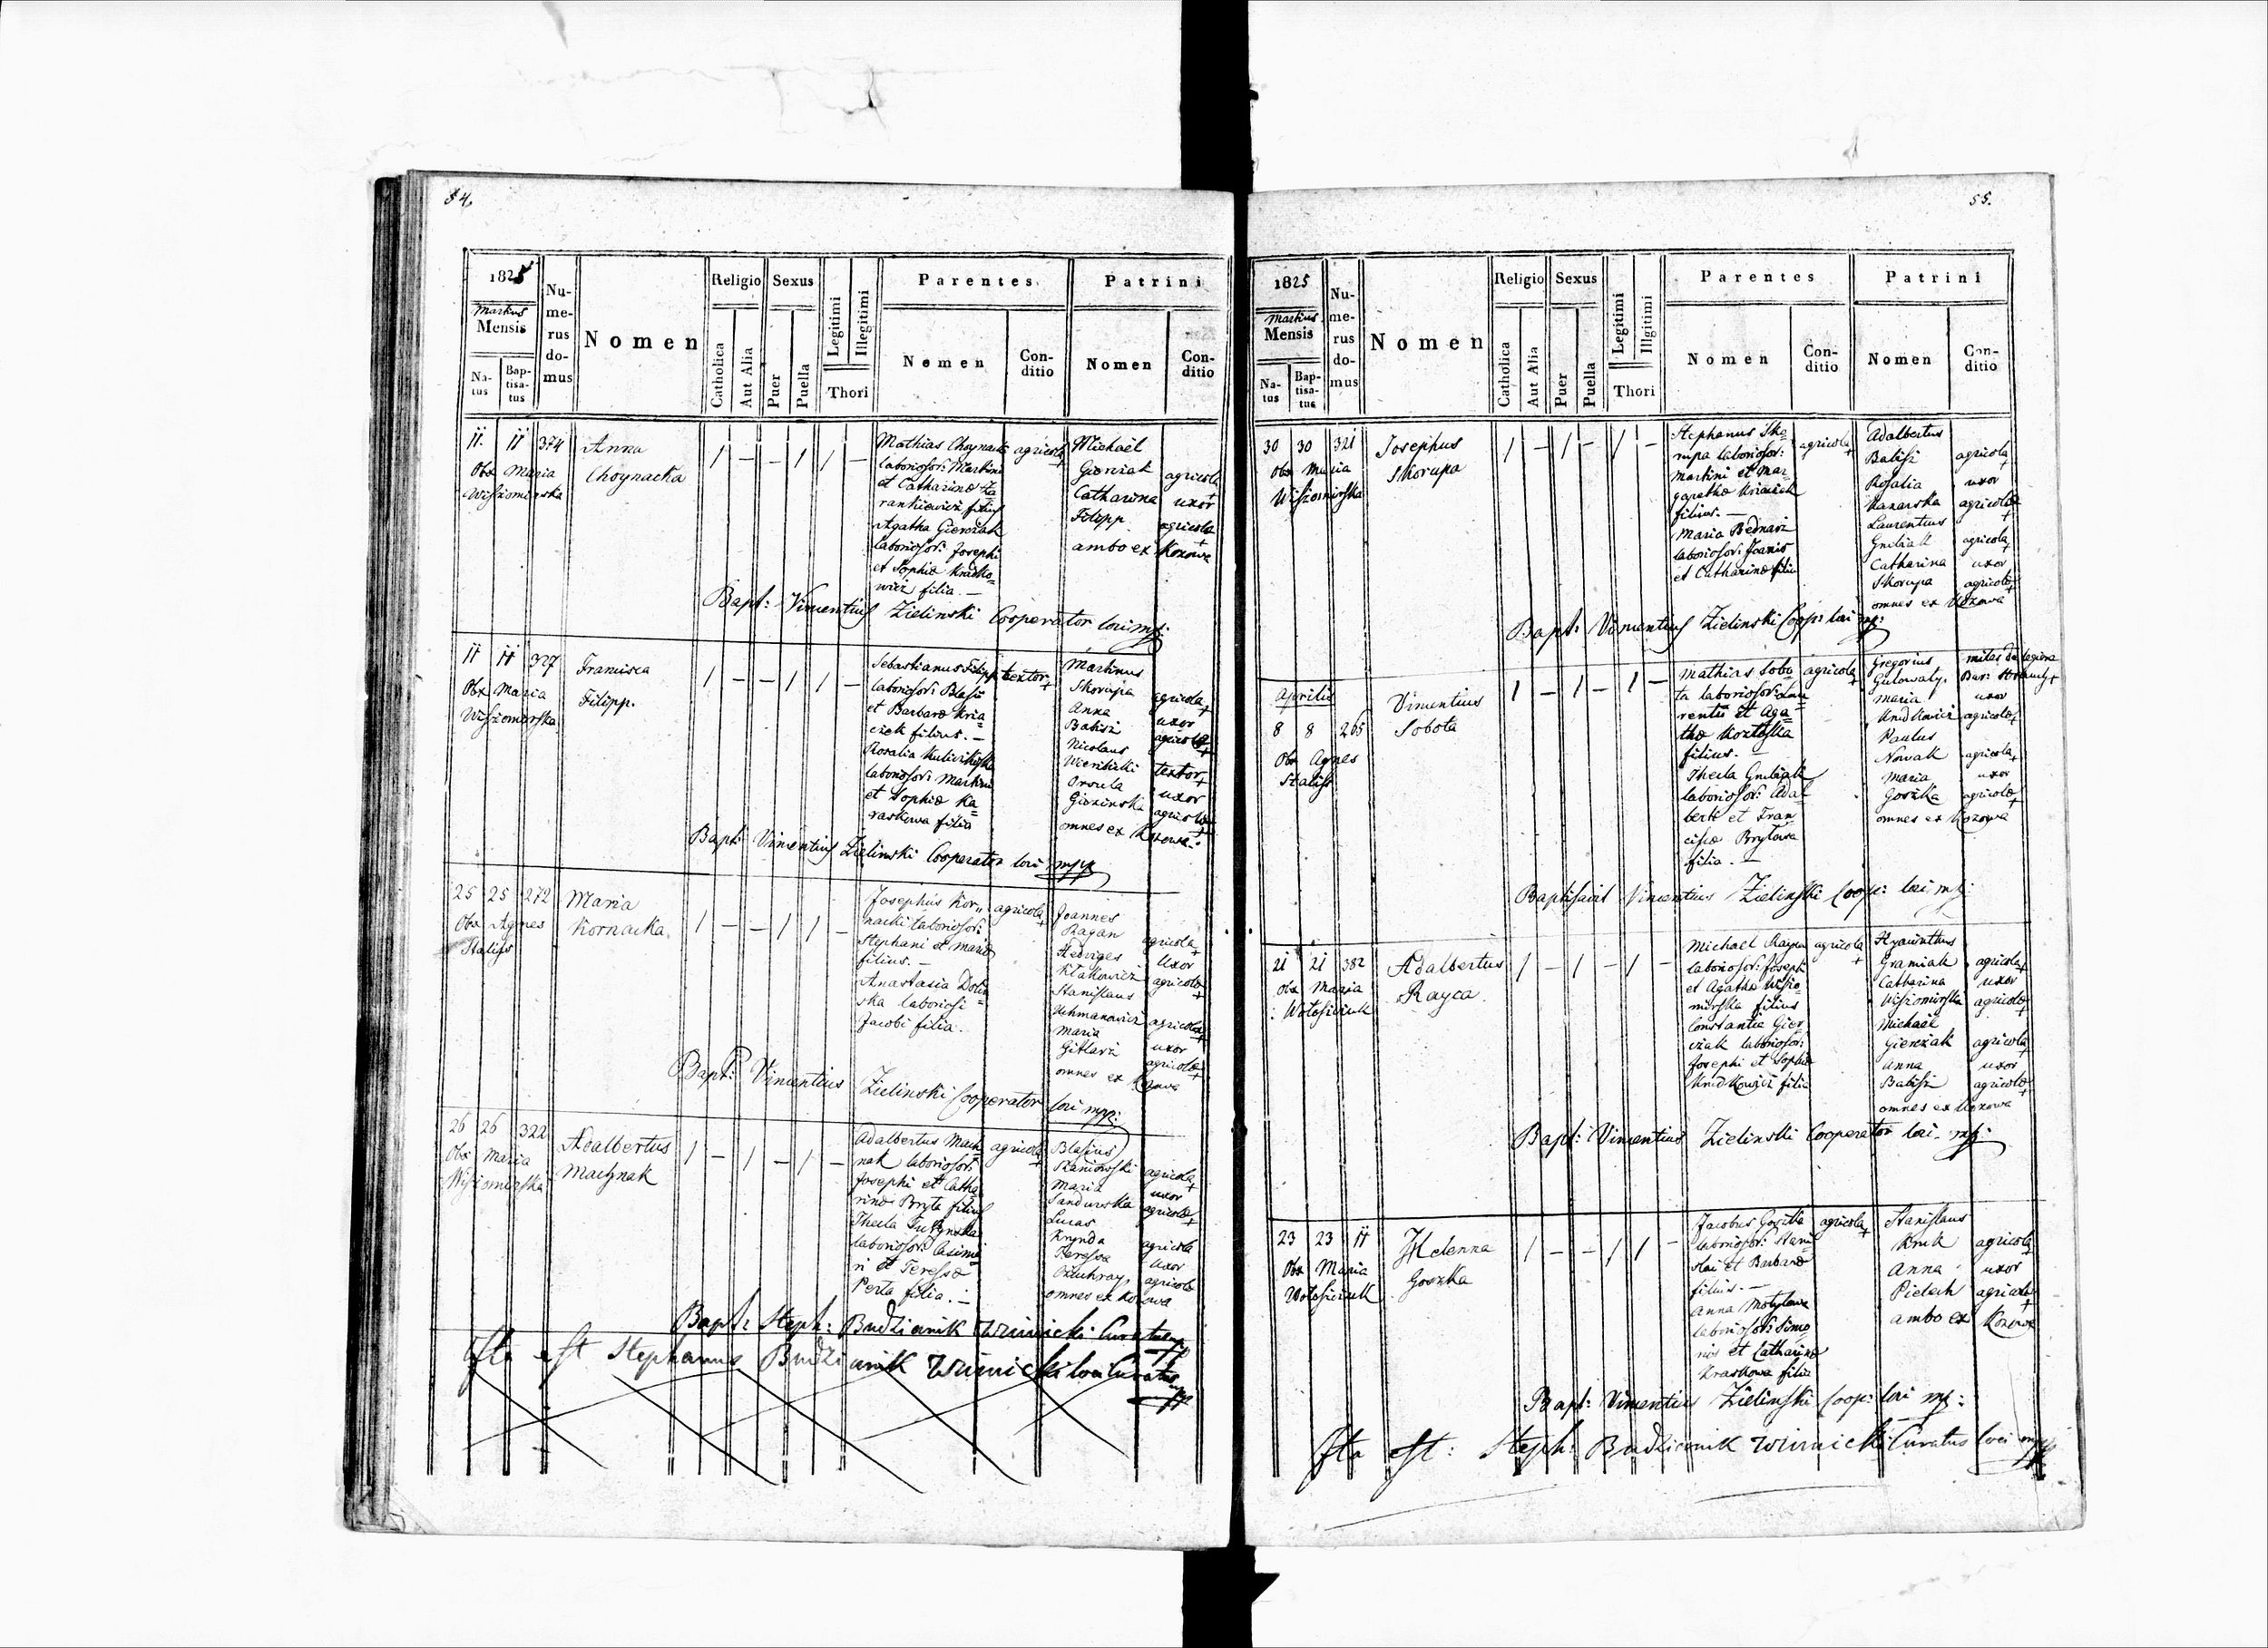 54.
1825
Martius
Mensis
Na-
tus
Bap-
tisa-
tus
Nu-
me-
rus
do-
mus
Nomen
Religio
Catholica
Aut Alia
Sexus
Puer
Puella
Legitimi
Illegitimi
Thori
Parentes
Nomen
Con-
ditio
Patrini
Nomen
Con-
ditio
11. 11 374
Obx Maria
Wiszomirska
Anna
Choynacka
1 – – 1 1 –
Mathias Choynacki
laborios: Martini
et Catharinæ
filius
Agatha Gierczak
laborios: Josephi
et Sophiæ
filia. –
agricola
Michaël
Catharina
Filipp
ambo ex Kozowa
agricola
uxor
agricolæ
Bapt: Vincentius Zielinski Cooperator loci mp:
11 11 327
Obx Maria
Wiszomirska
Francisca
Filipp.
1 – – 1 1 –
Sebastianus Filipp
laborios: Blasii
et Barbaræ Kria-
czek filius. –
Rosalia
laborios: Martini
et Sophiæ Ka-
raskowa filia
textor
Martinus
Skorupa
Anna
Babisz
Nicolaus
Wierzbicki
Orsula
Gierzinska
omnes ex Kozowa.
agricola
uxor
agricolæ
textor
uxor
agricolæ
Bapt: Vincentius Zielinski Cooperator loci mpp
25 25 272
Obx Agnes
Stalisz
Maria
Kornacka.
1 – – 1 1 –
Josephus Kor-
nacki laborios:
Stephani et Mariæ
filius. –
Anastasia Dolin-
ska laboriosi
Jacobi filia.
agricola
Joannes
Ragan
Hedviges
Stanislaus
Uchmanowicz
Maria
Gitlarz
omnes ex Kozowa
agricola
uxor
agricolæ
agricola
uxor
agricolæ
Bapt: Vincentius Zielinski Cooperator loci mpp:
26 26 322
Obx Maria
Wiszomirska
Adalbertus
Machnak
1 – 1 – 1 –
Adalbertus Mach-
nak laborios:
Josephi et Catha-
rinæ Bryta filius
Thecla
laborios: Casimi-
ri et Teressæ
Perta filia. –
agricola
Blasius
Kaniowski
Maria
Sandurska
Lucas
Krynda
Teressa
omnes ex Kozowa
agricola
uxor
agricolæ
agricola
uxor
agricolæ
Bapt: Steph: Budzianik Winnicki Curatus mp
Ita est Stephanus Budzianik Winnicki loci Curatus mp
55.
1825
Martius
Mensis
Na-
tus
Bap-
tisa-
tus
Nu-
me-
rus
do-
mus
Nomen
Religio
Catholica
Aut Alia
Sexus
Puer
Puella
Legitimi
Illgitimi
Thori
Parentes
Nomen
Con-
ditio
Patrini
Nomen
Con-
ditio
30 30 321
Obx Maria
Wiszomirska
Josephus
Skorupa
1 – 1 – 1 –
Stephanus Sko-
rupa laborios:
Martini et Mar-
garethæ Kriaczek
filius. –
Maria Bednarz
laborios: Joanis
et Catharinæ filia
agricola
Adalbertus
Babisz
Rosalia
Kazarska
Laurentius
Gnibiak
Catharina
Skorupa
omnes ex Kozowa
agricola
uxor
agricolæ
agricola
uxor
agricolæ
Bapt: Vincentius Zielinski Coop: loci mp:
Aprilis
8 8 265
Obx Agnes
Stalisz
Vincentius
Sobota
1 – 1 – 1 –
Mathias Sobo-
ta laborios: Lau-
rentii et Aga-
thæ
filius. –
Thecla Gnibiak
laborios: Adal-
berti et Fran-
ciscæ Brytowa
filia. –
agricola
Gregorius
Gulowaty.
Maria
Paulus
Nowak
Maria
Goszka
omnes ex Kozowa
miles de legione
uxor
agricolæ
agricola
uxor
agricolæ
Baptisavit Vincentius Zielinski Coop: loci mp:
21 21 382
Obx Maria
: Wołosieciuk
Adalbertus
Rayca.
1 – 1 – 1 –
Michael Rayca
laborios: Joseph
et Agatha Wiszo-
mirska filius
Constantia Gier-
czak laborios:
Josephi et Sophiæ
filia
agricola
Hyacinthus
Gramiak
Catharina
Wiszomirska
Michael
Gierczak
Anna
Babisz
omnes ex Kozowa
agricola
uxor
agricolæ
agricola
uxor
agricolæ
Bapt: Vincentius Zielinski Cooperator loci mp:
23 23 11
Obx Maria
Wołosieciuk
Helenna
Goszka
1 – – 1 1 –
Jacobus Goszka
laborios: Stani-
slai et Barbaræ
filius. –
Anna Motylowa
laborios: Simo-
nis et Catharinæ
Kraskowa filia
agricola
Stanislaus
Kruk
Anna
Pielech
ambo ex Kozowa
agricola
uxor
agricolæ
Bapt: Vincentius Zielinski Coop: loci mp:
Ita est: Steph: Budzianik Winnicki Curatus loci mp